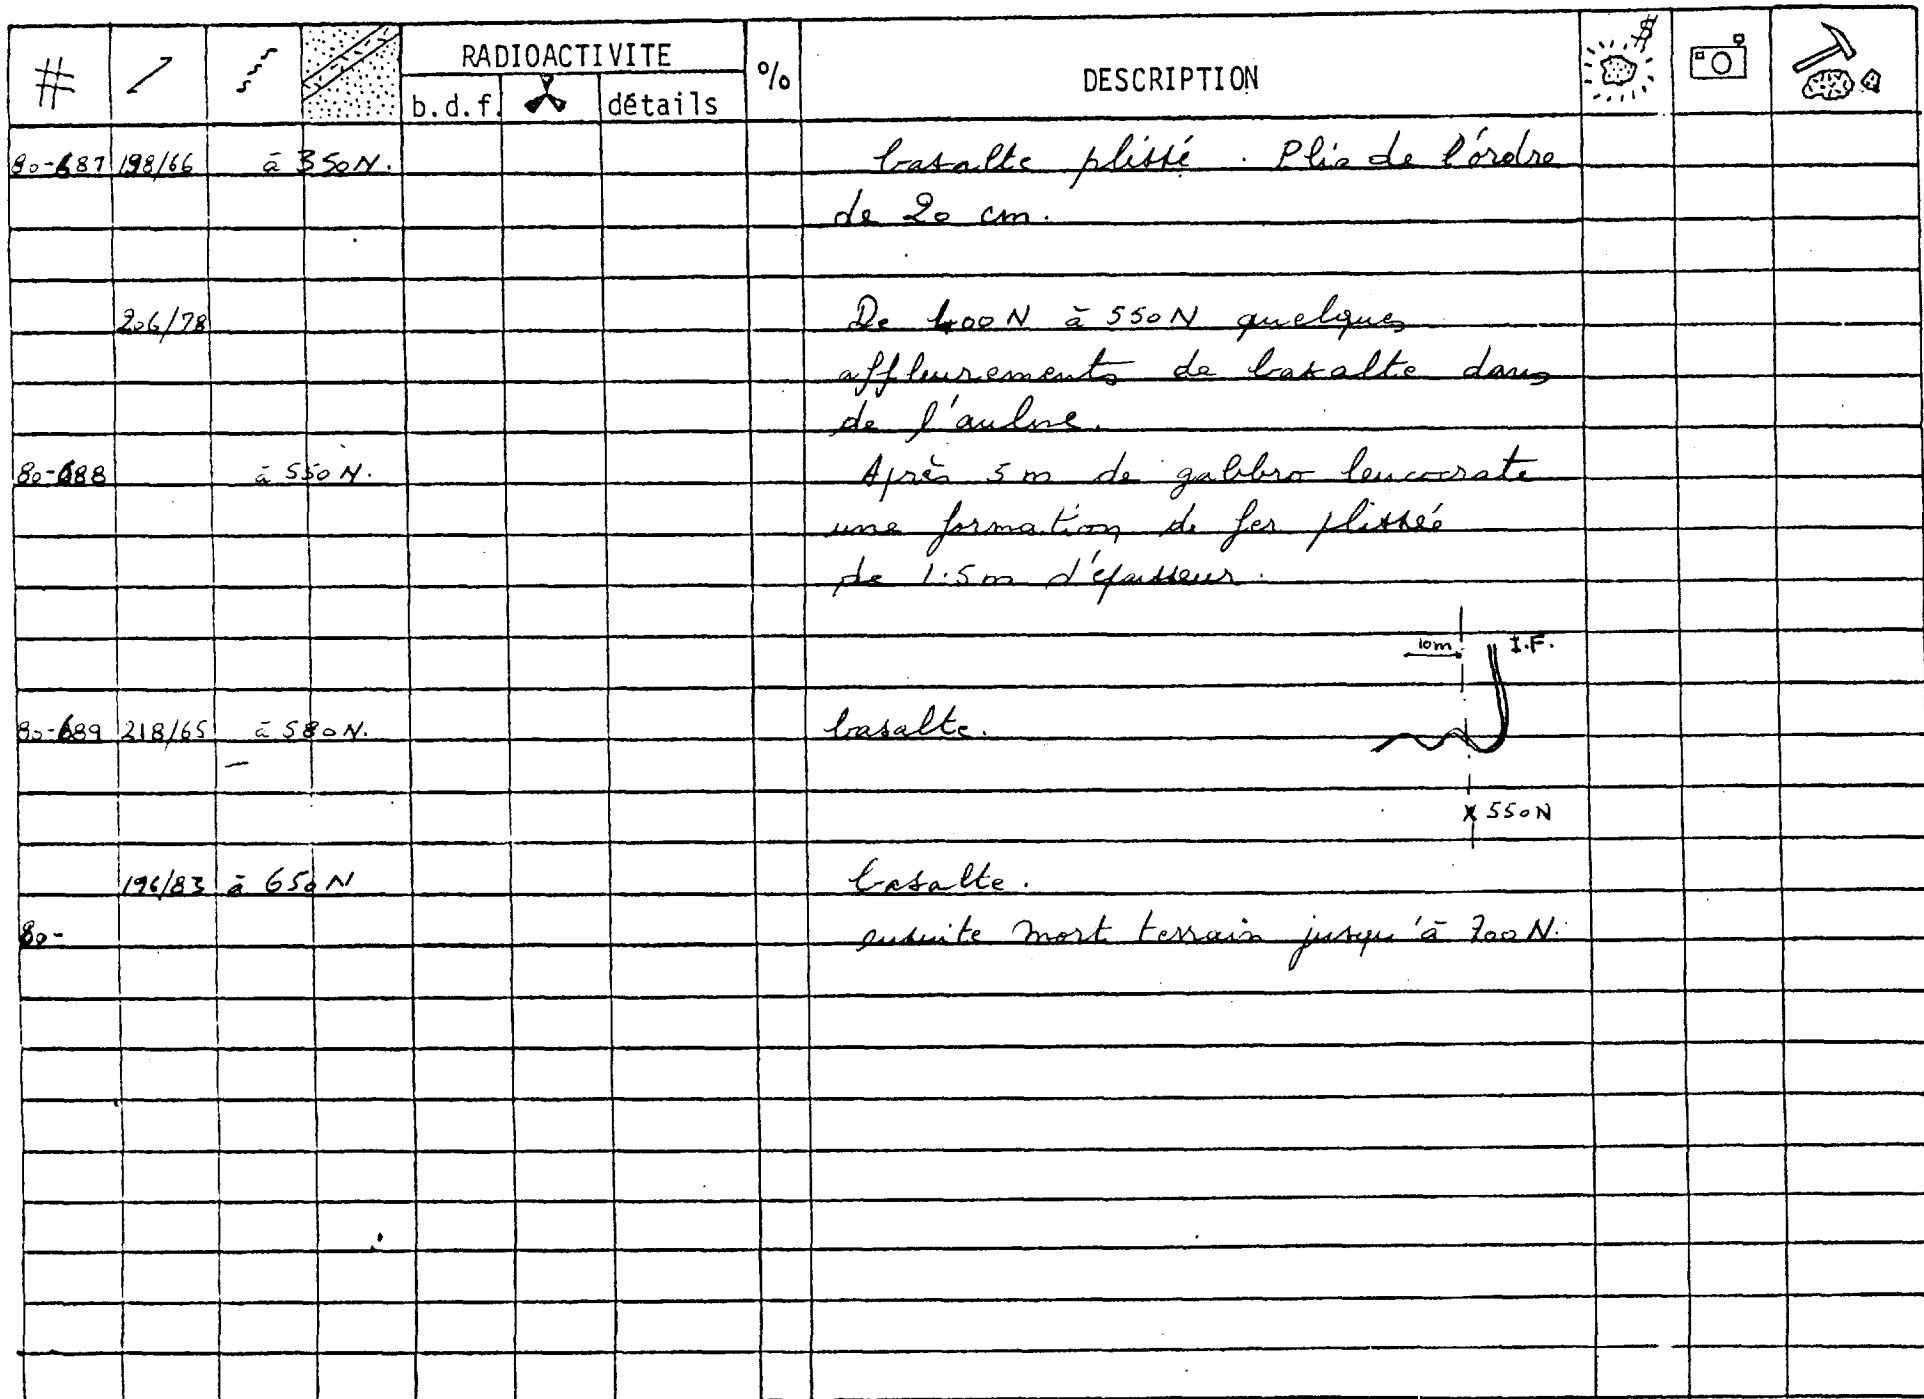 # RADIOACTIVITE % DESCRIPTION $
b.d.f. détails
80-687 198/66 à 350N. basalte plissé. Plis de l'ordre
de 20 cm.
206/78 De 400N à 550N quelques
affleurements de basalte dans
de l'aulne.
80-688 à 550N. Après 5m de gabbro leucocrate
une formation de fer plissée
de 1.5m d'épaisseur.
10m I.F.
80-689 218/65 à 580N. basalte.
x 550N
196/83 à 650N basalte.
80- ensuite mort terrain jusqu'à 700N.